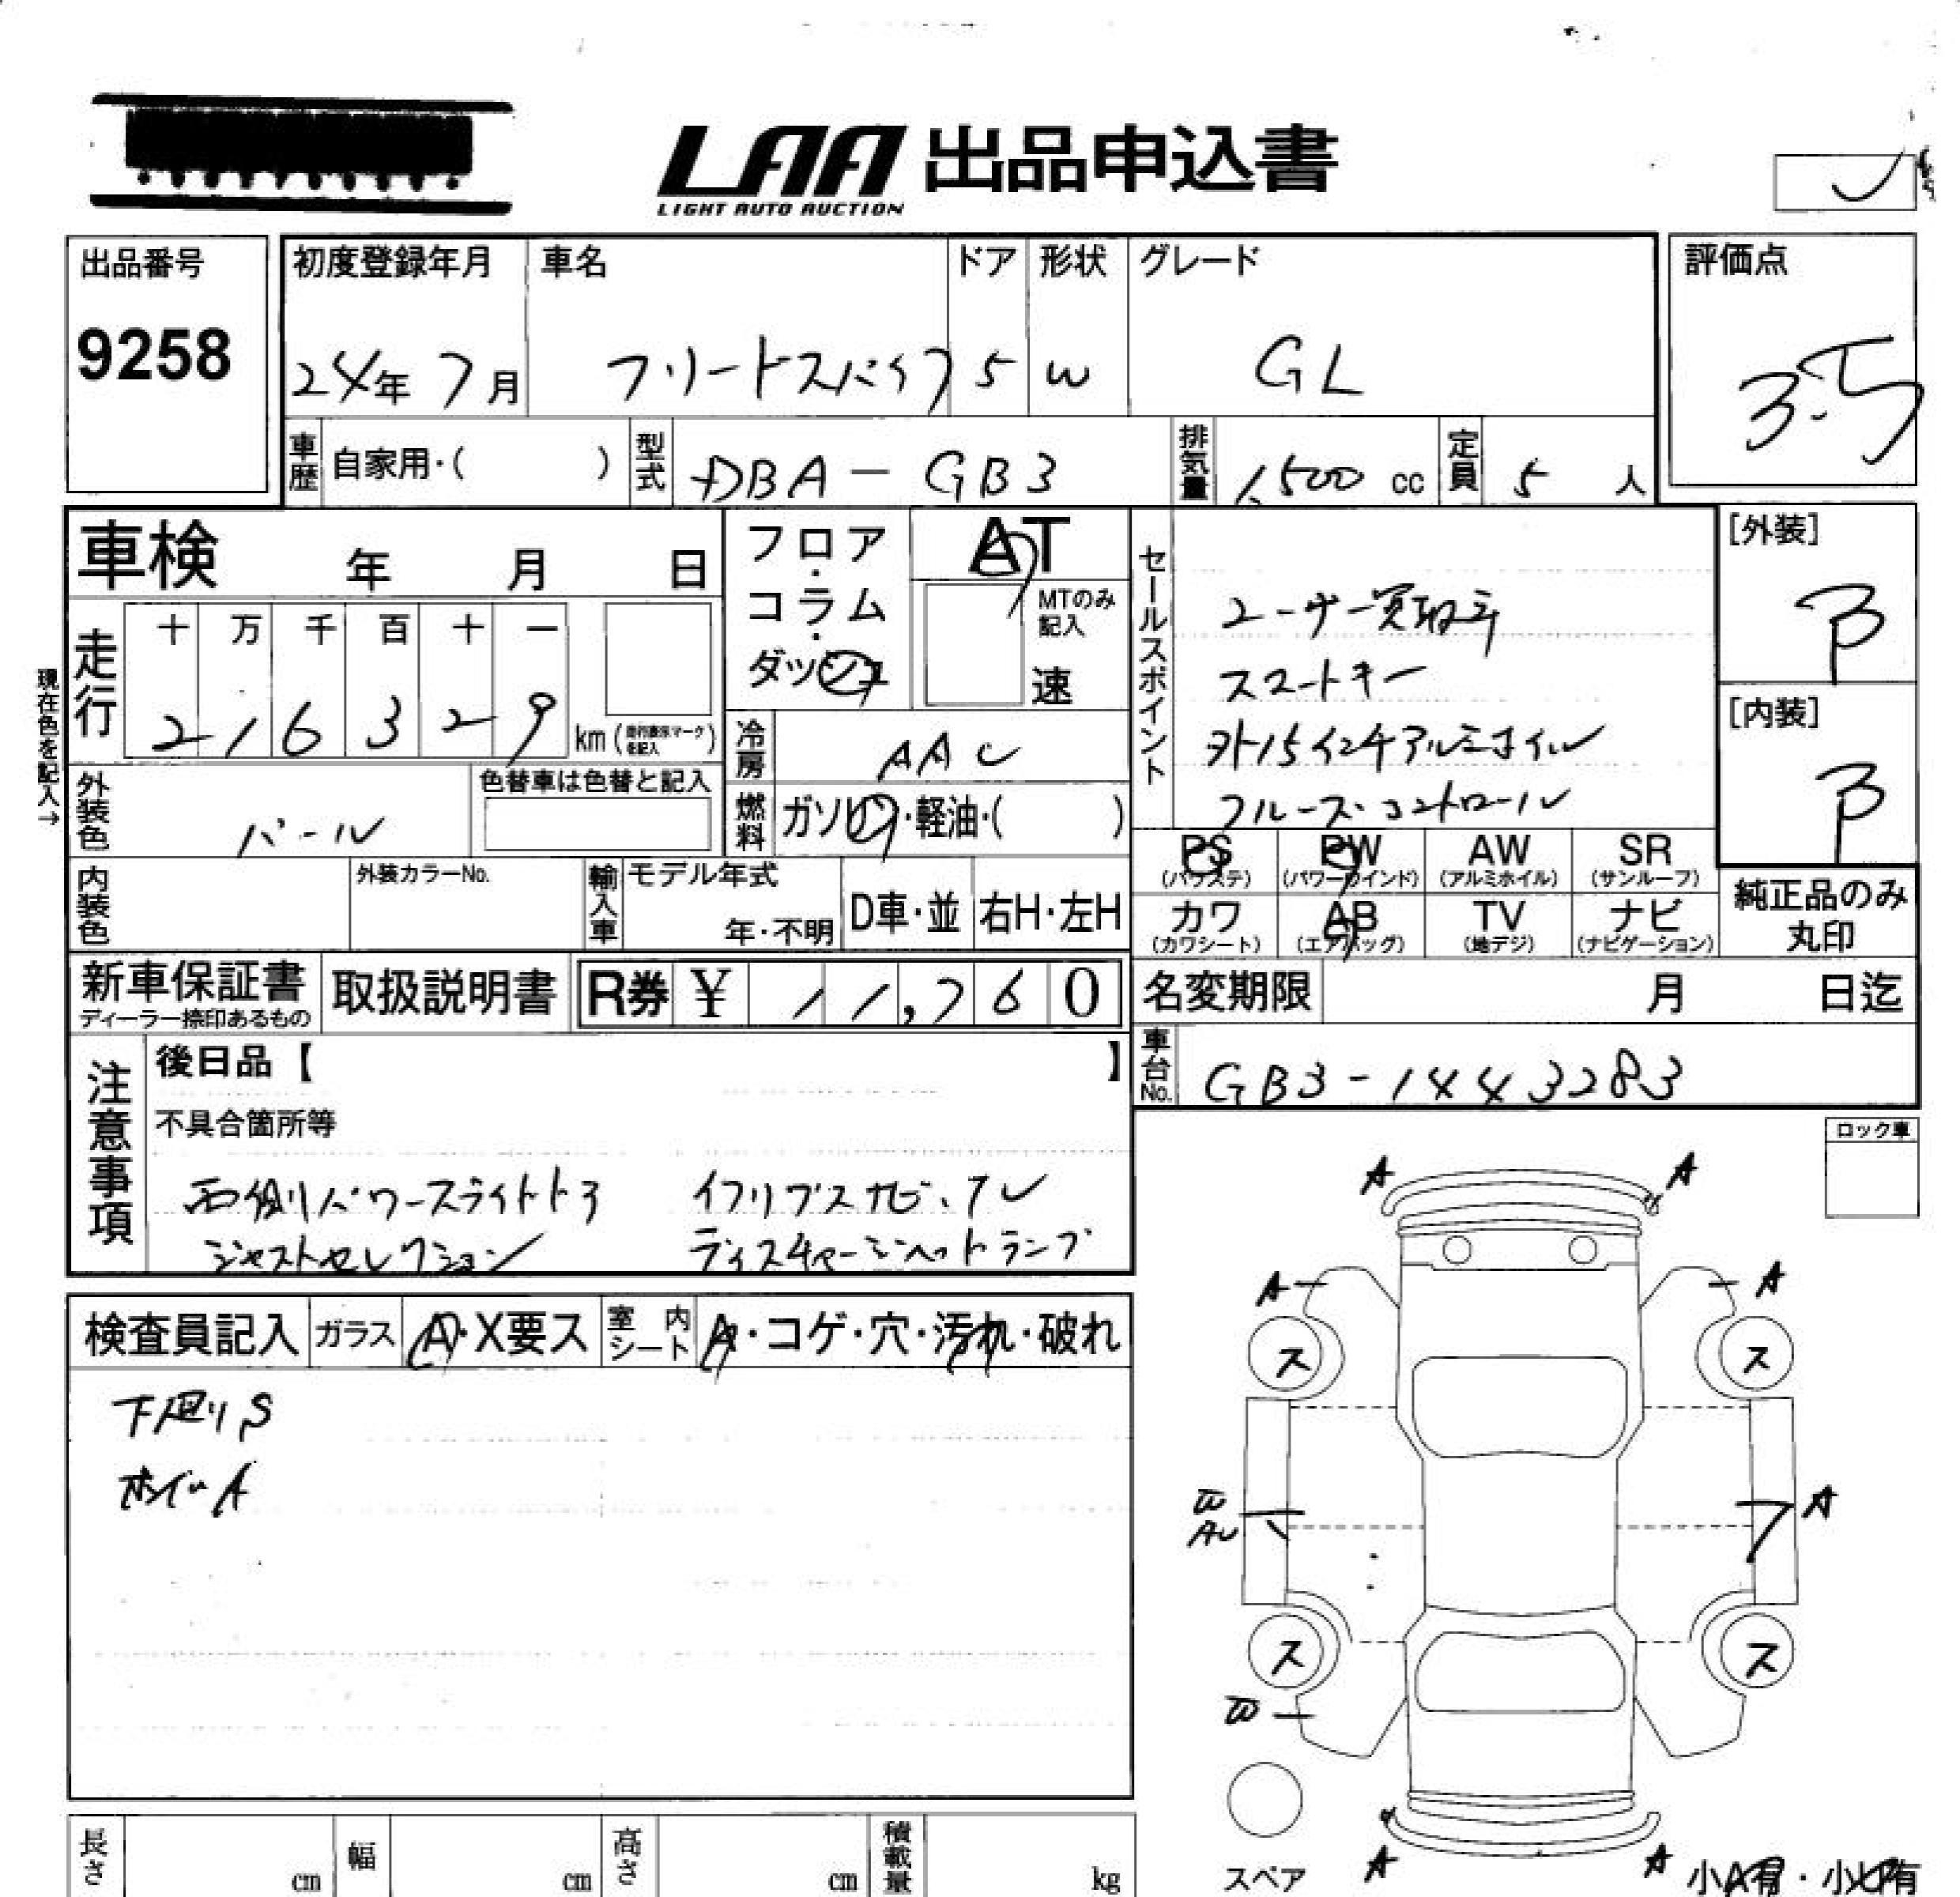 LAA 出品申込書
LIGHT AUTO AUCTION
出品番号
9258
初度登録年月
24年 7月
車名
フリードスパイク
ドア
5
形状
W
グレード
GL
評価点
3.5
車歴 自家用・( )
型式 DBA-GB3
排気量 1,500 cc
定員 5 人
車検 年 月 日
走行 十 万 千 百 十 一
216329 km (走行表示マークを記入)
現在色を記入→
外装色 パール
色替車は色替と記入
内装色
外装カラーNo.
フロア・コラム・ダッシュ
AT
MTのみ記入
速
冷房 AAC
燃料 ガソリン・軽油・( )
輸入車 モデル年式
年・不明
D車・並 右H・左H
セールスポイント
ユーザー買取車
スマートキー
外15インチアルミホイル
クルーズコントロール
[外装]
B
[内装]
B
PS (パワステ) PW (パワーウインド) AW (アルミホイル) SR (サンルーフ)
カワ (カワシート) AB (エアバッグ) TV (地デジ) ナビ (ナビゲーション)
純正品のみ丸印
新車保証書
ディーラー捺印あるもの
取扱説明書
R券 ¥ 11,760
名変期限 月 日迄
車台No. GB3-1443283
注意事項
後日品【 】
不具合箇所等
両側パワースライドドア
イクリプスナビ、TV
ジャストセレクション
ディスチャージヘッドランプ
ロック車
検査員記入 ガラス A・X要ス 室内シート A・コゲ・穴・汚れ・破れ
下廻りS
ホイールA
A A
A A
ス ス
A
AU
ス ス
スペア
A A
小A有・小U有
長さ cm 幅 cm 高さ cm 積載量 kg